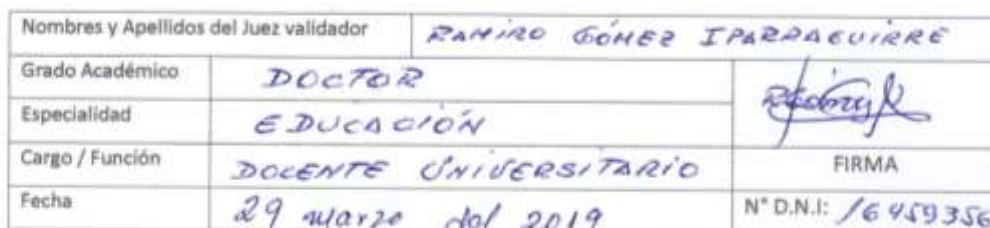 Nombres y Apellidos del Juez validador RAMIRO GÓMEZ IPARRAGUIRRE
Grado Académico DOCTOR
Especialidad EDUCACIÓN
Cargo / Función DOCENTE UNIVERSITARIO
FIRMA
Fecha 29 marzo del 2019
N° D.N.I: 16459356